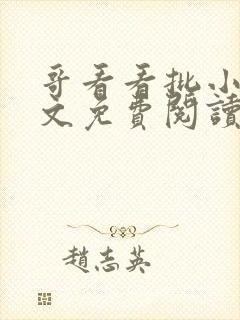 哥看看批小
文免費閱讀
趙志英